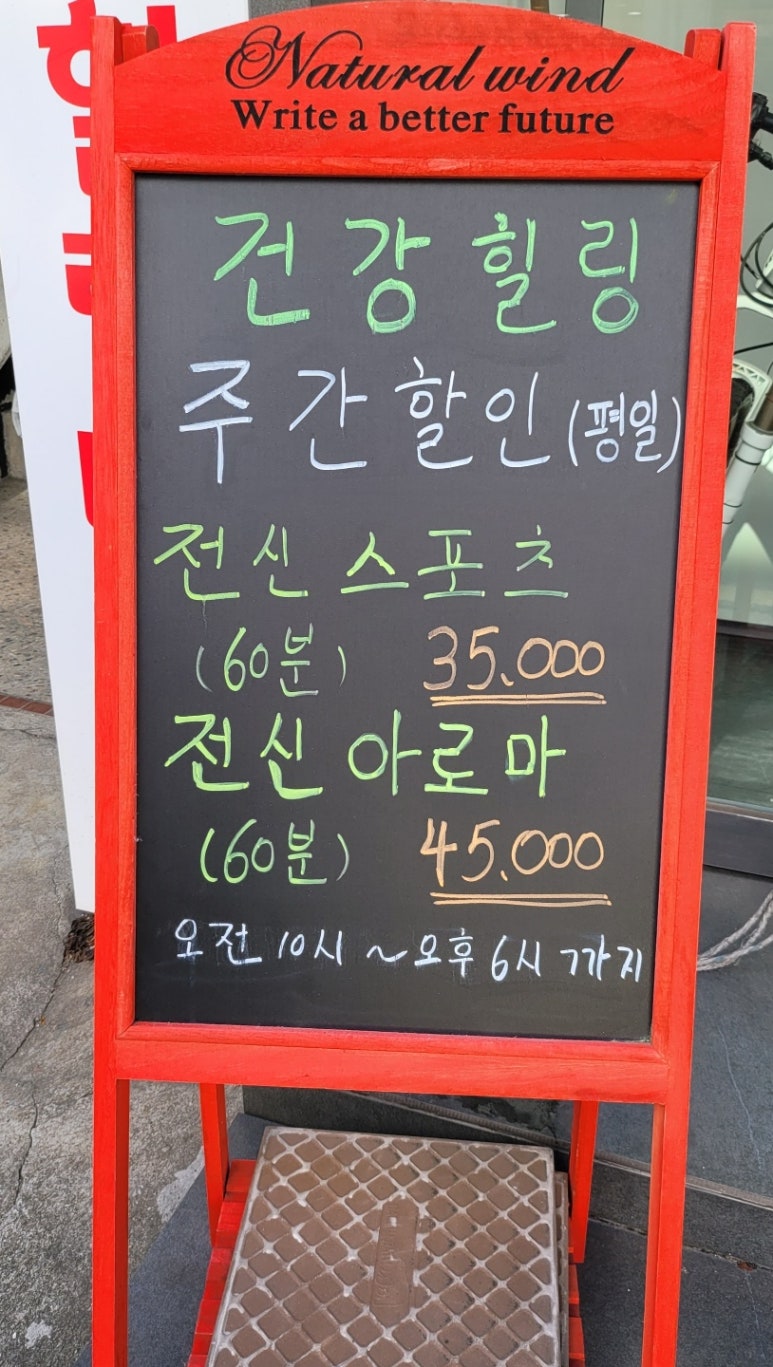 Natural wind
Write a better future
건강힐링
주간할인(평일)
전신스포츠
(60분) 35.000
전신 아로마
(60분) 45.000
오전 10시 ~ 오후 6시 까지